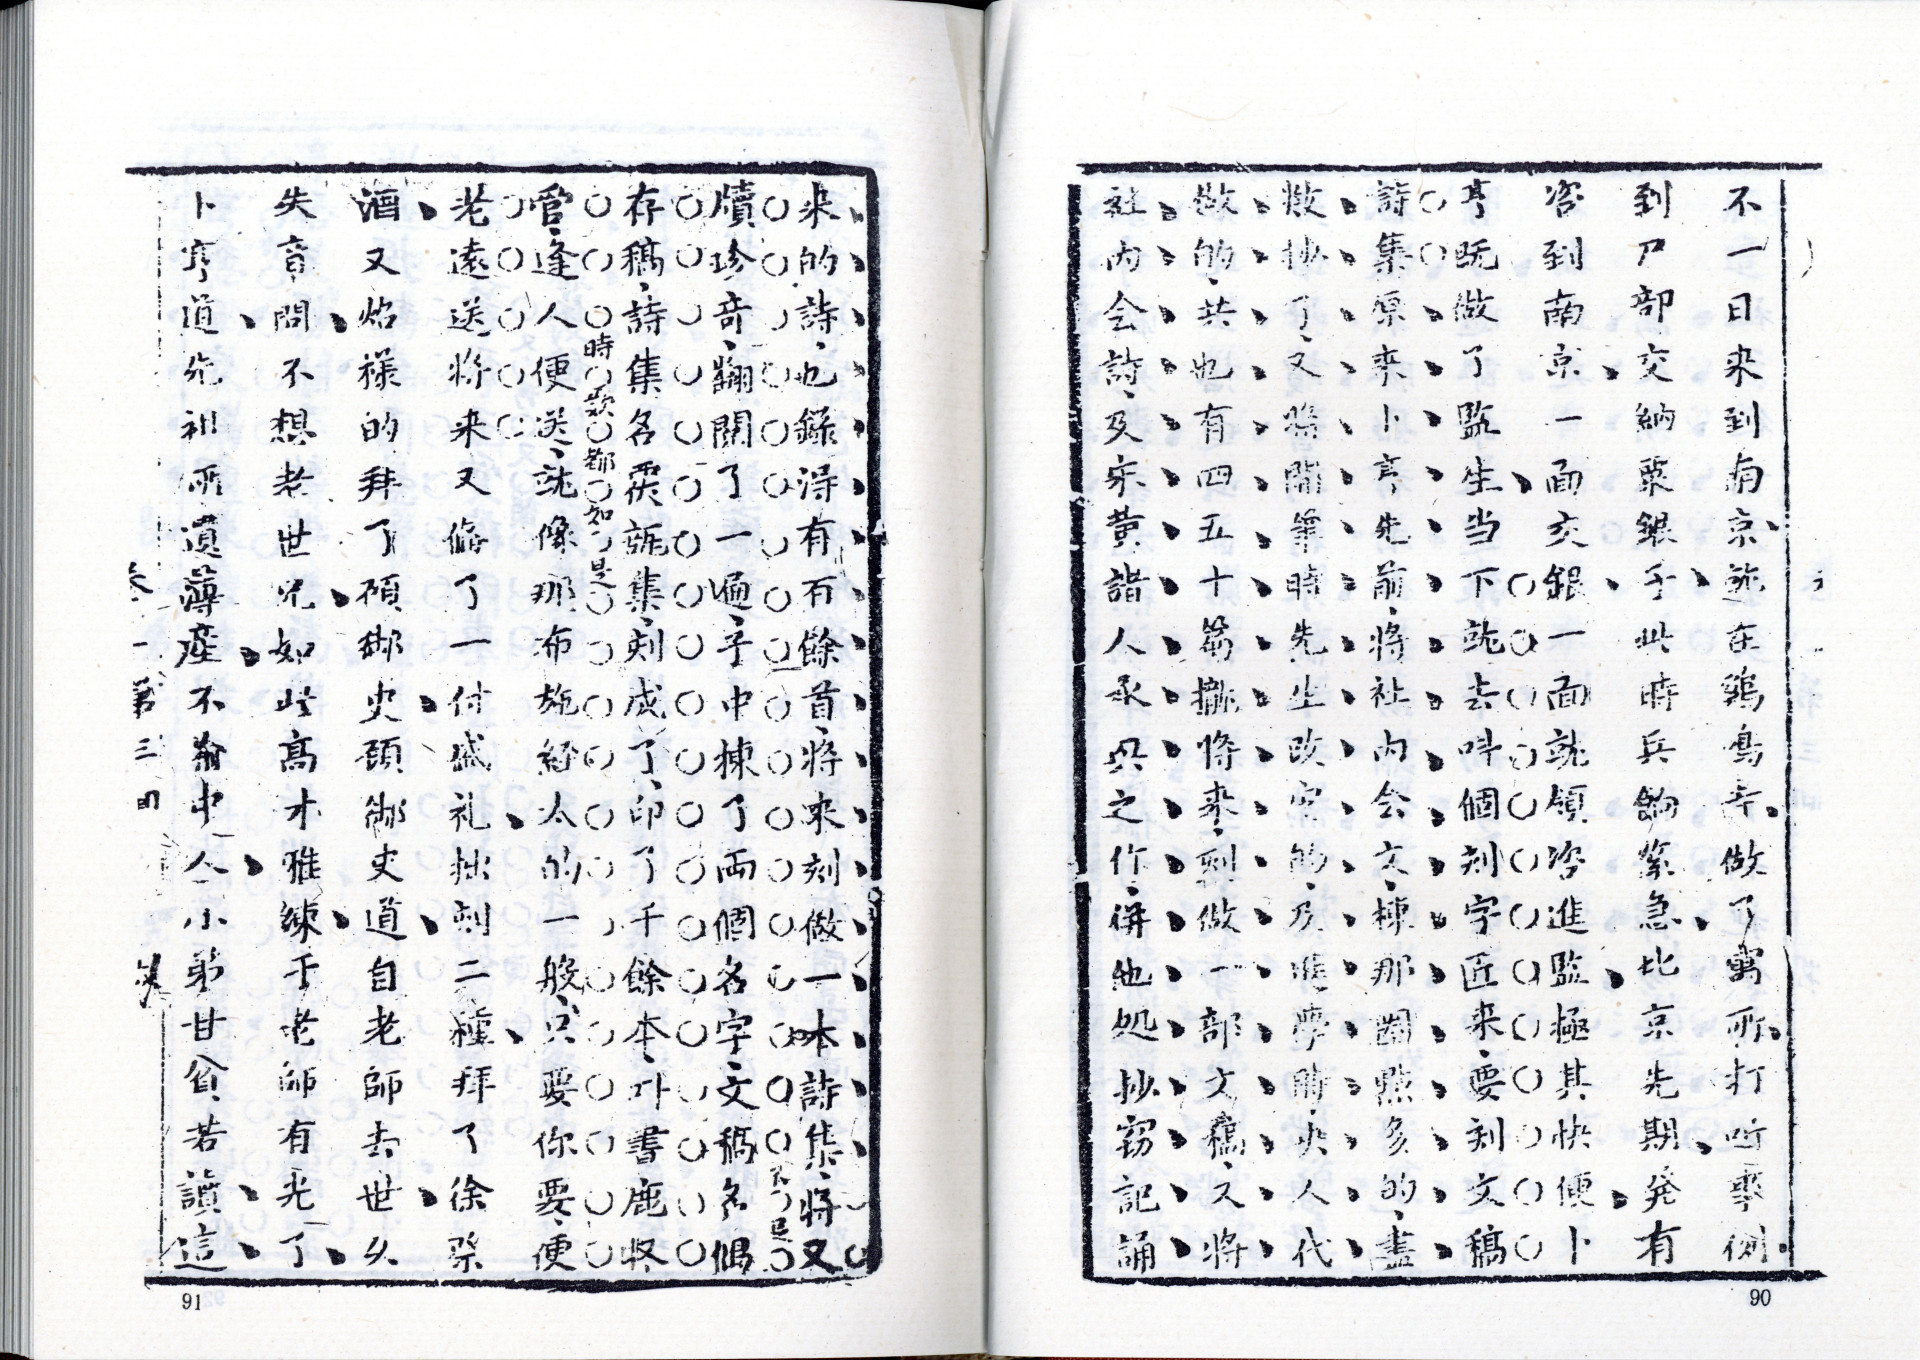 不一日来到南京在鷄鳥寺做了寓所打听事例
到户部交納粟銀子此時兵餉紧急北京先期発有
咨到南京一面交銀一面就領咨進監極其快便卜
亨既做了監生当下就去呌個刻字匠来要刻文稿
詩集原来卜亨先前将社内会文揀那圈㸃多的盡
做抄了又将開筆時先生改定的及進學時央人代
做的共也有四五十萹攦将来刻做一部文稿又将
社内会詩及宋黄諸人承與之作併他処抄窃記誦
90
来的詩也錄得有百餘首将来刻做一本詩集将又
牘珍竒翻閱了一遍于中揀了両個名字文稿名偈
存稿詩集名霡詆集刻成了印了千餘本不書鹿柊
管逢人便送就像那布施経太的一般只要你要便
時歌都如是
老遠送将来又俻了一付盛礼拙刻二種拜了徐祭
酒又炤様的拜了碩御史碩御史道自老師去世久
失音問不想老世兄如此高才雅練于老師有光了
卜亨道先祖所遺薄産不觳中人小弟甘貧若讀這
卷一 第三回
91